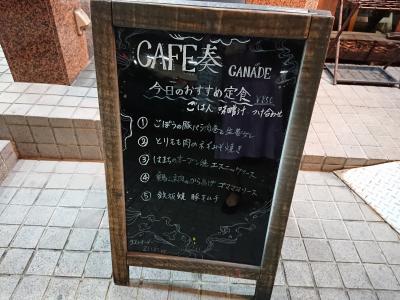 CAFE奏 CANADE
今日のおすすめ定食 ¥850
ごはん 味噌汁 つけ合わせ
① ごぼうの豚バラ肉巻と
② とりもも肉のねぎみそ焼き
③ はまちのオーブン焼 エスニックソース
④ 鶏むね肉のからあげ ゴママヨソース
⑤ 鉄板焼 豚キムチ
ラストオーダー